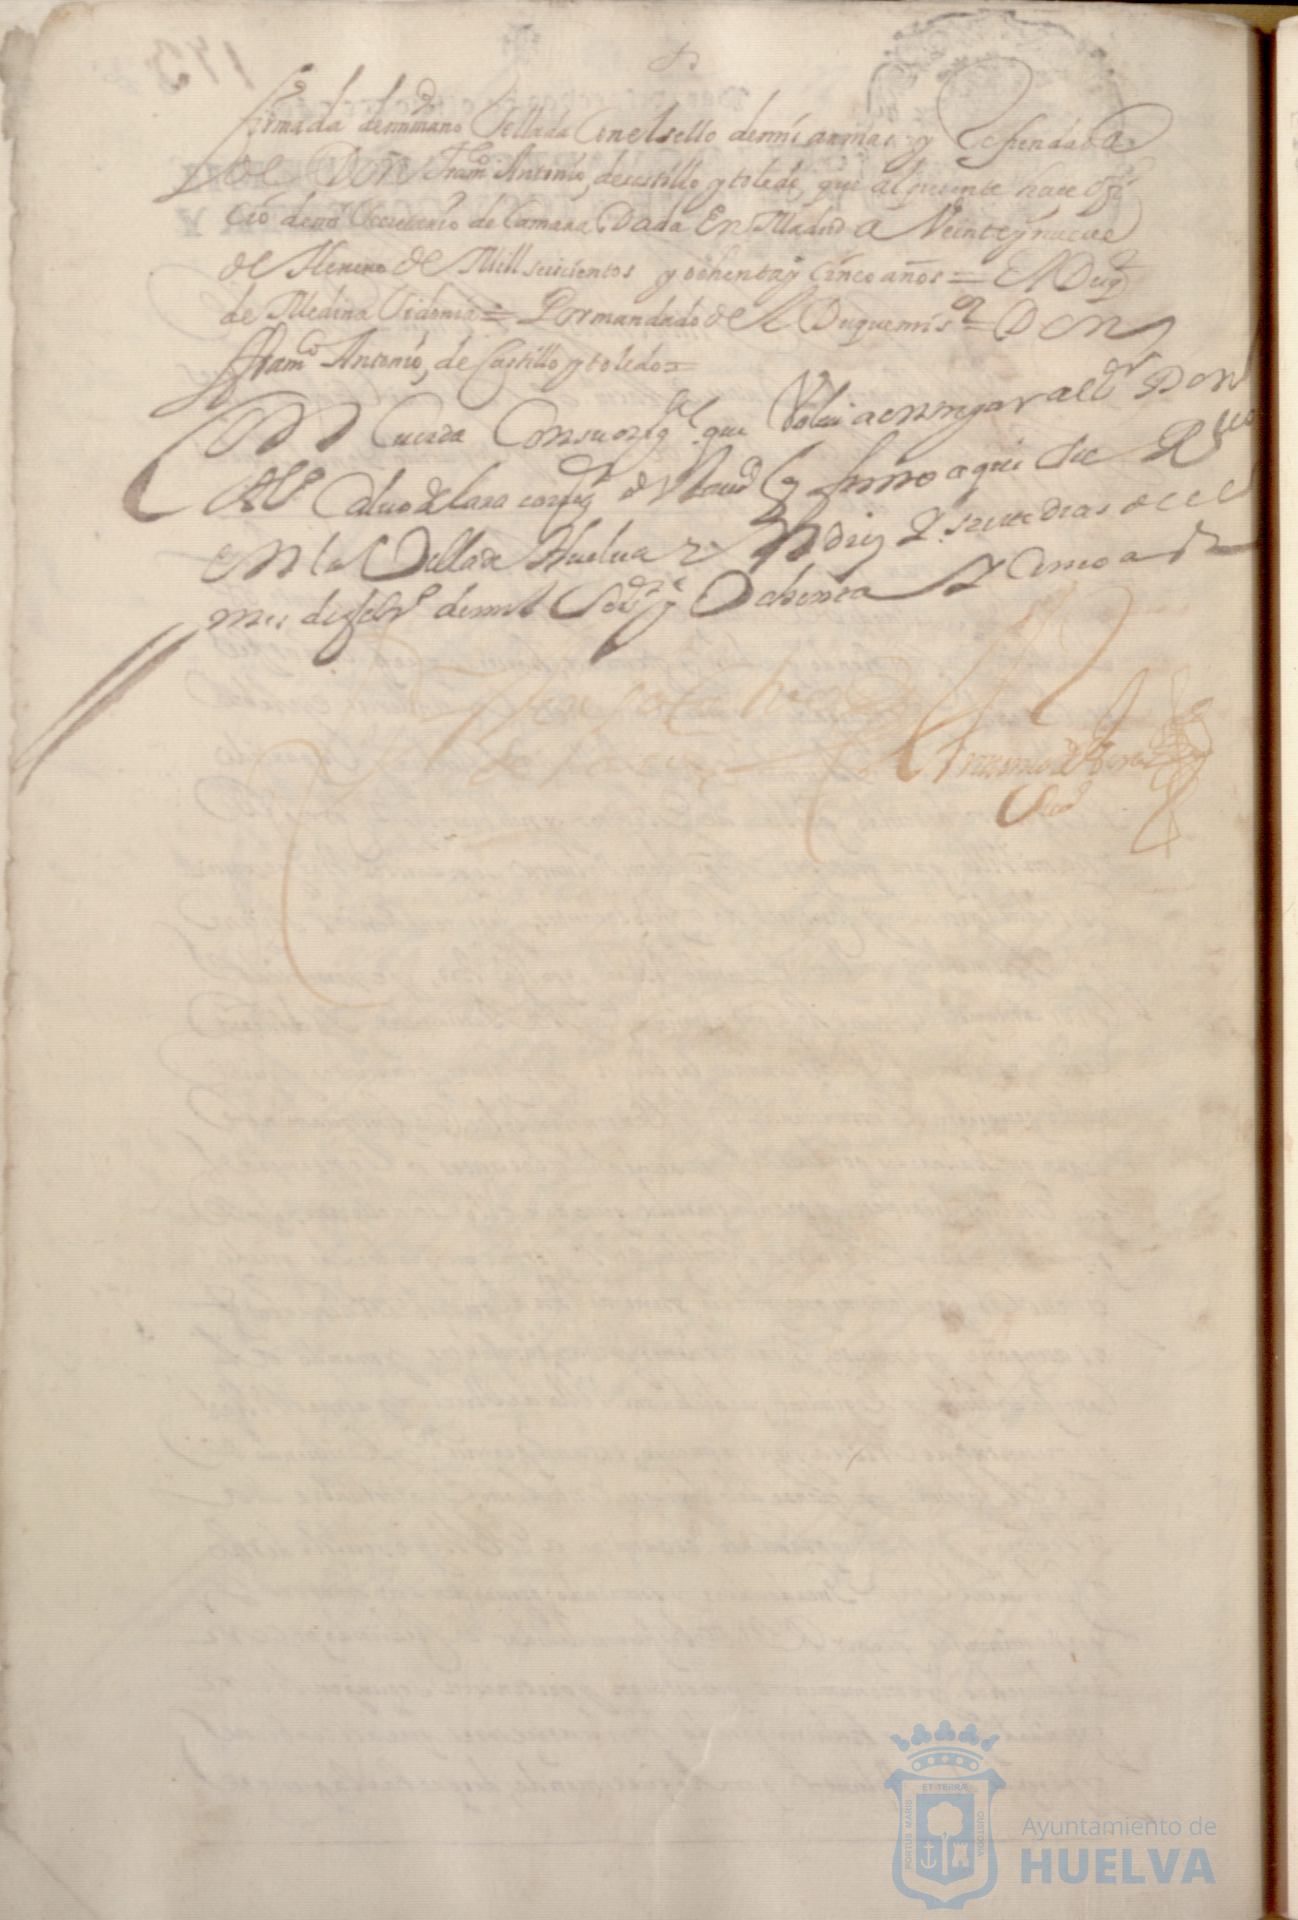 firmada demi mano Sellada Con el sello de mis armas y Refrendada
de Don Franco Antonio, de castillo y toledo, que al presente hace ofi
cio de mi Secretario de Camara Dada En Madrid a Veinte y nueve
de Henero de Mill seiscientos y ochenta y Cinco años = El Duq
de Medina Sidonia = Por mandado de El Duque mi sr = Don
Franco Antonio, de Castillo y toledo =
Cuerda Con su orig.l que Volui a entregar al Sr Don
Alº Caluo de Lara correg.r de Sta uª y firmo aqui su Rº
en la Villa de Huelua a diez y siete dias del
mes de febrº de mil Seisº y Ochenta y Cinco as
de Lara
Antonio de
Scno
ET TERRÆ
PORTUS MARIS
CUSTODIA
Ayuntamiento de
HUELVA